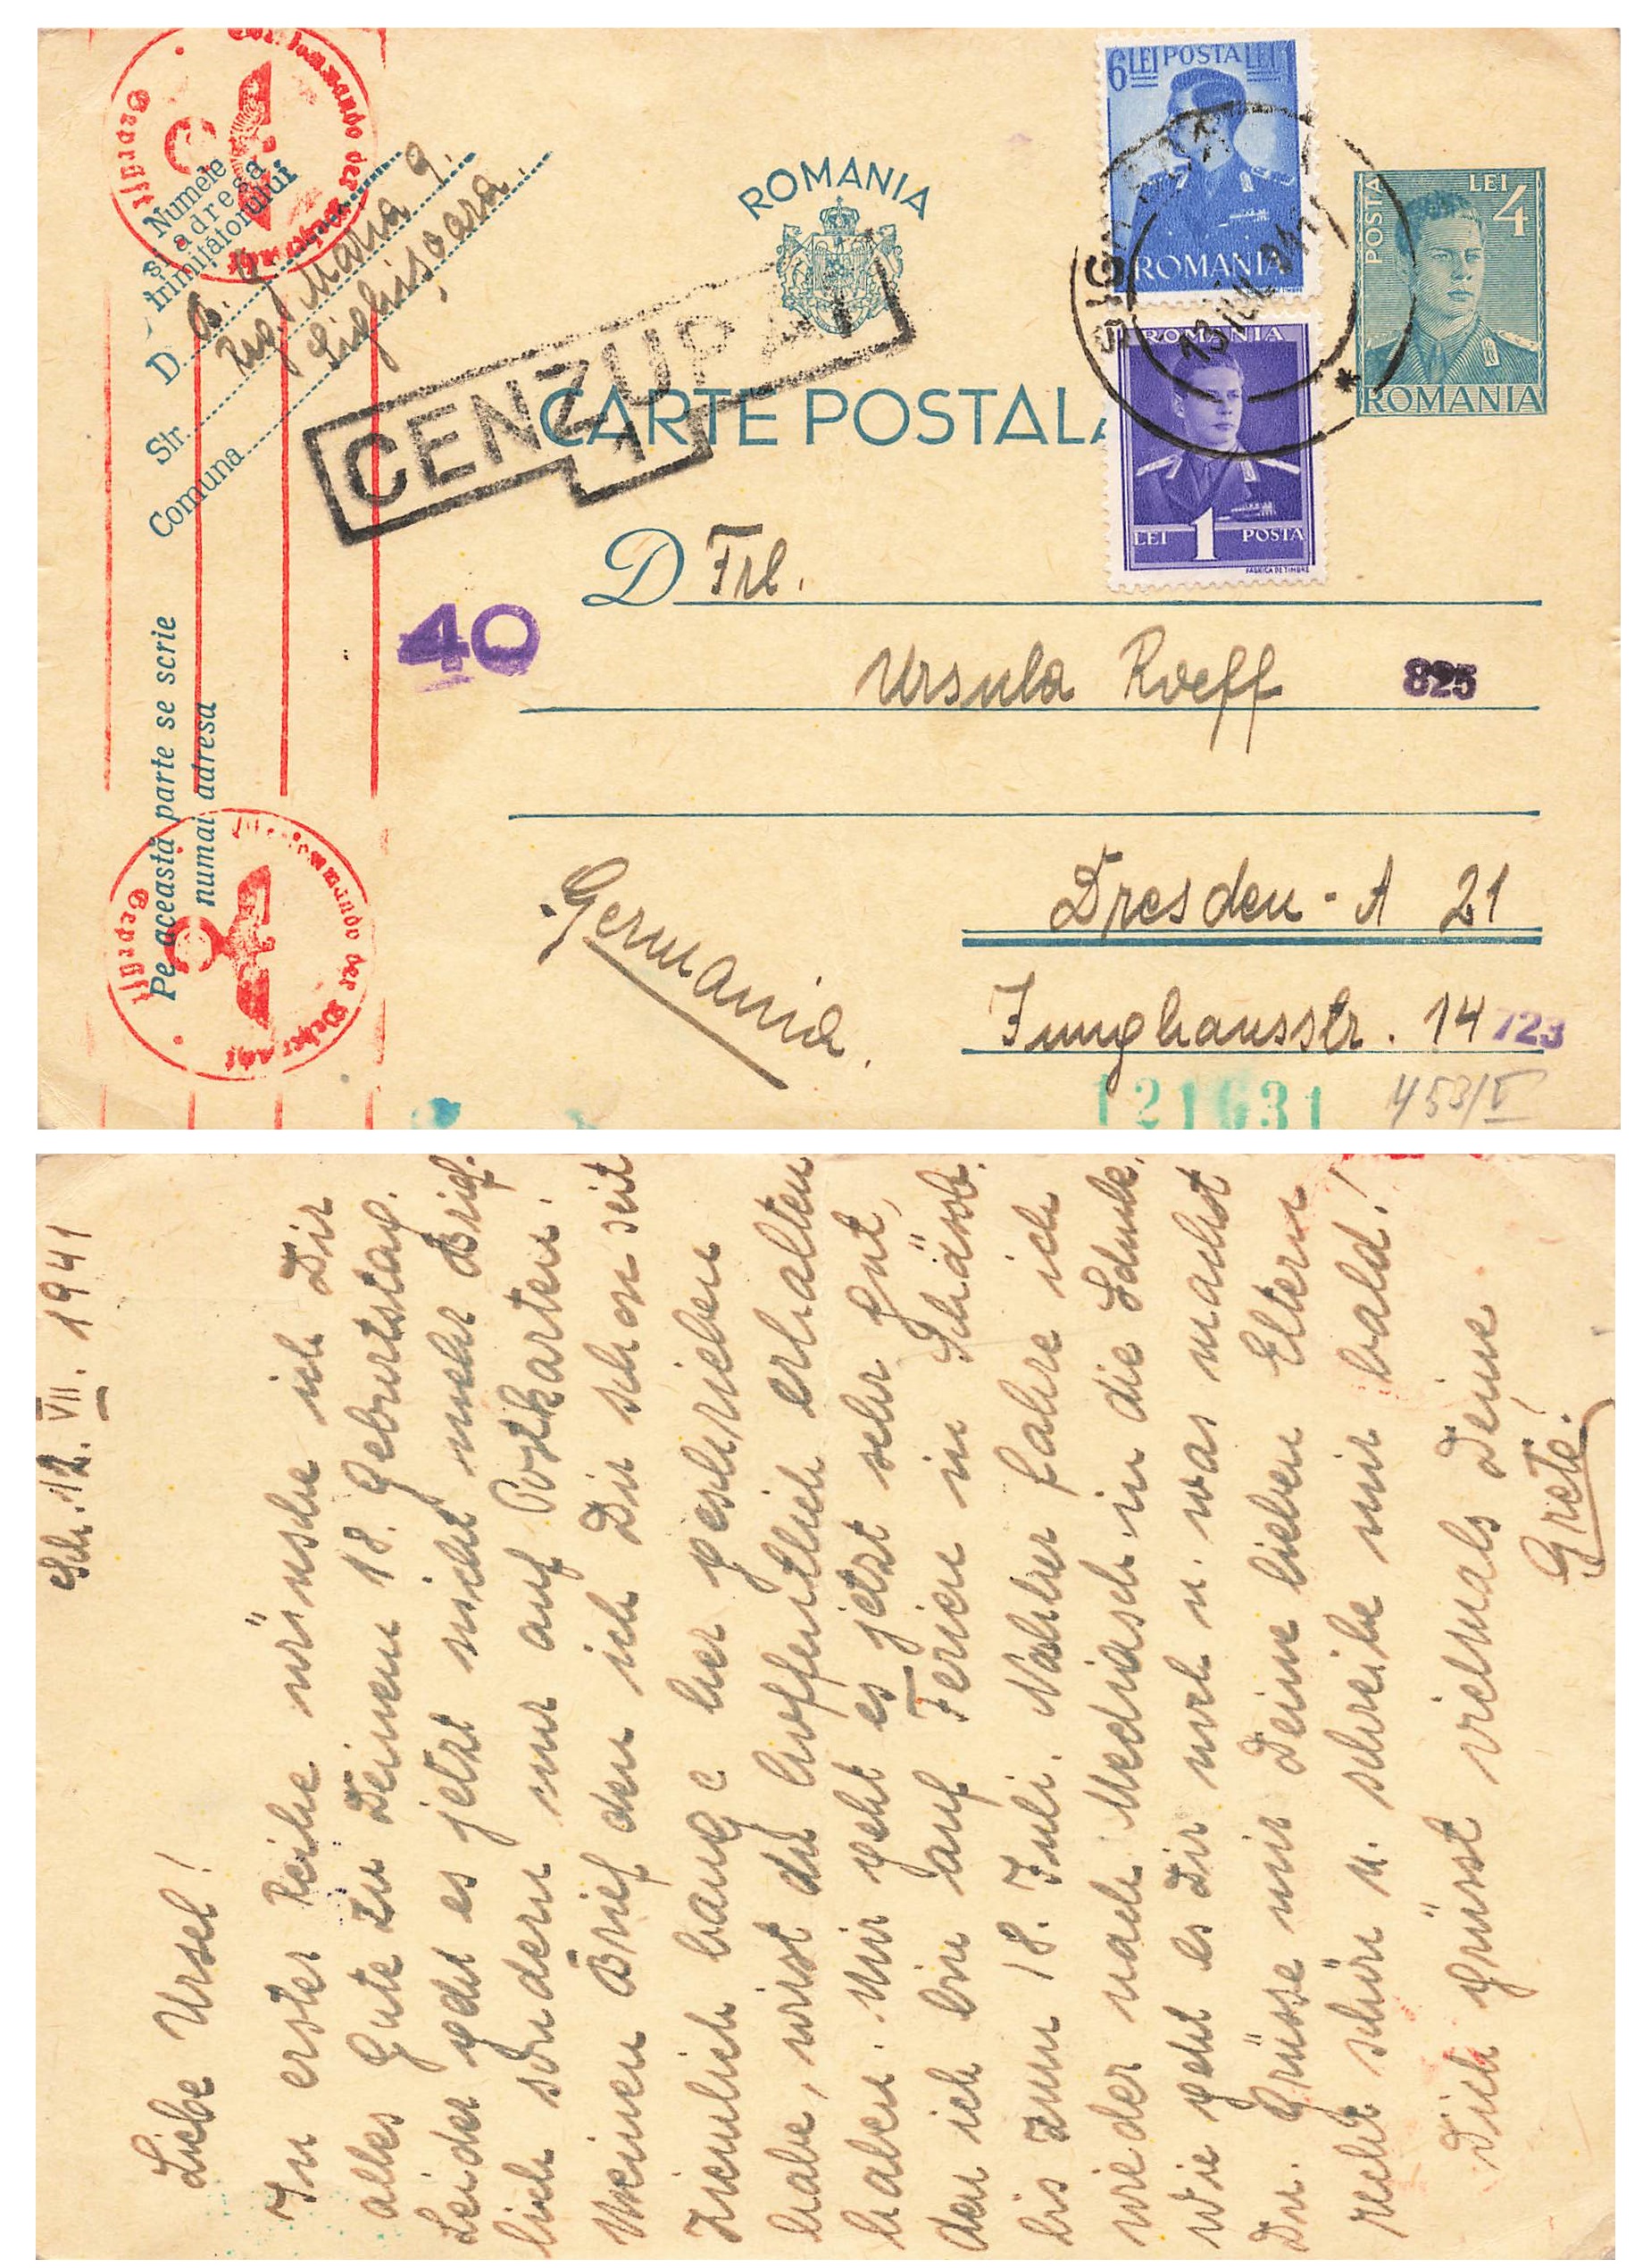 Numele
și adresa
trimițătorului
D.
Str. Reg. Maria 9.
Comuna Sighișoara.
Pe această parte se scrie
numai adresa
Oberkommando der Wehrmacht
Geprüft
ROMANIA
CARTE POSTALA
CENZURAT
1
6 LEI POSTA LEI
ROMANIA
ROMANIA
LEI 1 POSTA
FABRICA DE TIMBRE
POSTA LEI 4
ROMANIA
13 IUL 941
40
D Frl.
Ursula Roeff
825
Dresden - A 21
Germania.
Junghansstr. 14
723
121631
453/V
Oberkommando der Wehrmacht
Geprüft
Sch. 12. VII. 1941
Liebe Ursel!
In erster Reihe wünsche ich Dir
alles Gute zu Deinem 18. Geburtstag.
Leider geht es jetzt nicht mehr Brief
lich sondern nur auf Postkarten.
Meinen Brief den ich Dir schon seit
ziemlich lange her geschrieben
habe, wirst du hoffentlich erhalten
haben. Mir geht es jetzt sehr gut,
den ich bin auf Ferien in Schässb.
bis zum 18. Juli. Nachher fahre ich
wieder nach Mediasch in die Schule.
Wie geht es Dir noch u. was machst
Du. Grüsse mir Deine lieben Eltern
recht schön u. schreibe mir bald!
Dich grüsst vielmals Deine
Grete!